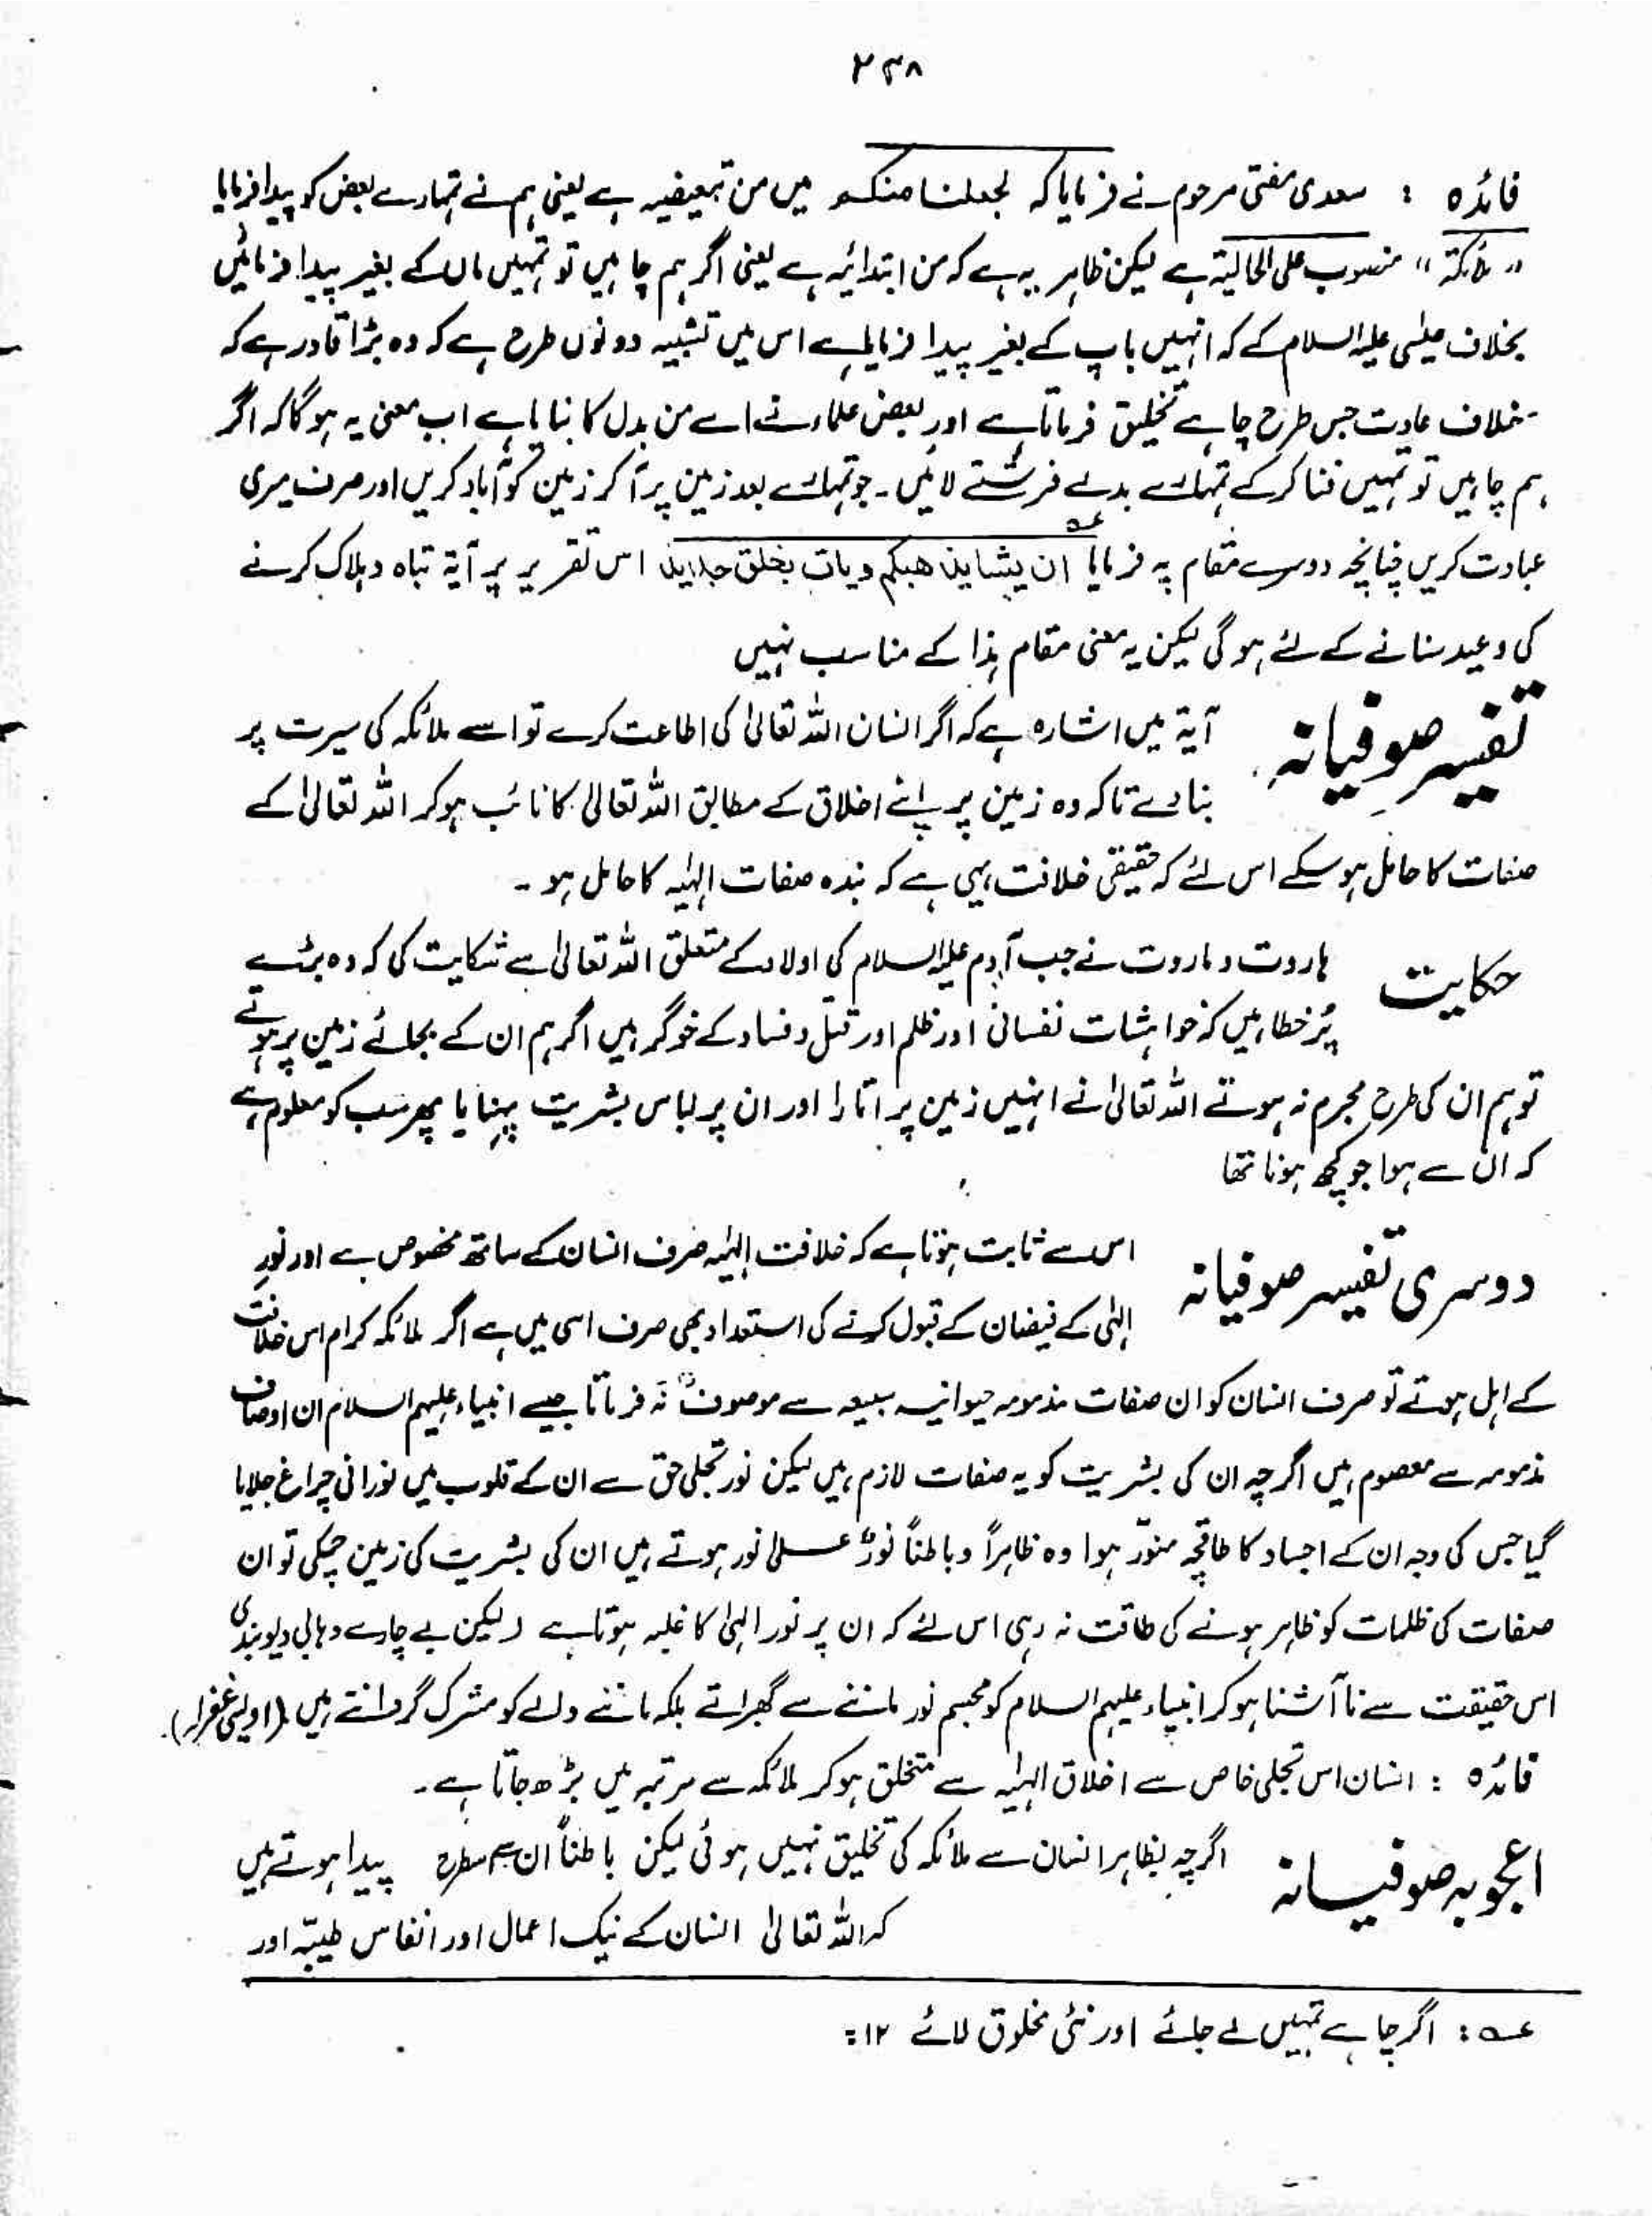 ۲۳۸
فائدہ : سعدی مفتی مرحوم نے فرمایا کہ لجعلنا منکم میں من تبعیضیہ ہے یعنی ہم نے تمہارے بعض کو پیدا فرمایا
" ملائکۃ " منصوب علی الحالیۃ ہے لیکن ظاہر یہ ہے کہ من ابتدائیہ ہے یعنی اگر ہم چاہیں تو تمہیں ماں کے بغیر پیدا فرمائیں
بخلاف عیلٰسی علیہ السلام کے کہ انہیں باپ کے بغیر پیدا فرمایا ہے اس میں تشبیہ دونوں طرح ہے کہ وہ بڑا قادر ہے کہ
خلاف عادت جس طرح چاہے تخلیق فرماتا ہے اور بعض علماء نے اسے من بدل کا بنایا ہے اب معنی یہ ہو گا کہ اگر
ہم چاہیں تو تمہیں فنا کر کے تمہارے بدلے فرشتے لائیں ۔ جو تمہارے بعد زمین پر آ کر زمین کو آباد کریں اور صرف میری
عبادت کریں چنانچہ دوسرے مقام پہ فرمایا ان یشا یذھبکم ویات بخلق جدید عہ اس تقریر پر آیۃ تباہ و ہلاک کرنے
کی وعید سنانے کے لئے ہو گی لیکن یہ معنی مقام ہذا کے مناسب نہیں
تفسیر صوفیانہ آیۃ میں اشارہ ہے کہ اگر انسان اللہ تعالیٰ کی اطاعت کرے تو اسے ملائکہ کی سیرت پر
بنا دے تاکہ وہ زمین پر اپنے اخلاق کے مطابق اللہ تعالیٰ کا نائب ہو کر اللہ تعالیٰ کے
صفات کا حامل ہو سکے اس لئے کہ حقیقی خلافت یہی ہے کہ بندہ صفات الہٰیہ کا حامل ہو ۔
حکایت ہاروت و ماروت نے جب آدم علیہ السلام کی اولاد کے متعلق اللہ تعالیٰ سے شکایت کی کہ وہ بڑے
پُر خطا ہیں کہ خواہشات نفسانی اور ظلم اور قتل و فساد کے خوگر ہیں اگر ہم ان کے بجائے زمین پر ہوتے
تو ہم ان کی طرح مجرم نہ ہوتے اللہ تعالیٰ نے انہیں زمین پر اتارا اور ان پر لباس بشریت پہنایا پھر سب کو معلوم ہے
کہ ان سے ہوا جو کچھ ہونا تھا
دوسری تفسیر صوفیانہ اس سے ثابت ہوتا ہے کہ خلافت الہٰیہ صرف انسان کے ساتھ مخصوص ہے اور نورِ
الہٰی کے فیضان کے قبول کرنے کی استعداد بھی صرف اسی میں ہے اگر ملائکہ کرام اس خلافت
کے اہل ہوتے تو صرف انسان کو ان صفات مذمومہ حیوانیہ سبیعہ سے موصوف نہ فرماتا جیسے انبیاء علیہم السلام ان اوصاف
مذمومہ سے معصوم ہیں اگرچہ ان کی بشریت کو یہ صفات لازم ہیں لیکن نور تجلی حق سے ان کے قلوب میں نورانی چراغ جلایا
گیا جس کی وجہ ان کے اجساد کا طاقچہ منوّر ہوا وہ ظاہراً و باطناً نورٌ علیٰ نور ہوتے ہیں ان کی بشریت کی زمین چمکی تو ان
صفات کی ظلمات کو ظاہر ہونے کی طاقت نہ رہی اس لئے کہ ان پر نور الہیٰ کا غلبہ ہوتا ہے (لیکن بے چارے وہابی دیوبندی
اس حقیقت سے ناآشنا ہو کر انبیاء علیہم السلام کو مجسم نور ماننے سے گھبراتے بلکہ ماننے والے کو مشرک گردانتے ہیں۔ (اویسی غفرلہ)
فائدہ : انسان اس تجلی خاص سے اخلاق الہیٰہ سے متخلق ہو کر ملائکہ سے مرتبہ میں بڑھ جاتا ہے ۔
اعجوبہ صوفیانہ اگرچہ بظاہر انسان سے ملائکہ کی تخلیق نہیں ہوئی لیکن باطناً ان سے اس طرح پیدا ہوتے ہیں
کہ اللہ تعالیٰ انسان کے نیک اعمال اور انفاس طیبّہ اور
عہ : اگر چاہے تمہیں لے جائے اور نئی مخلوق لائے ۱۲ :